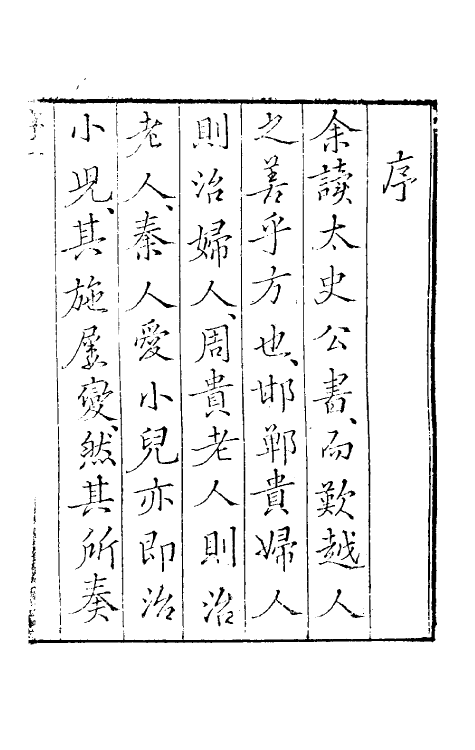 序
余讀太史公書、而歎越人
之善乎方也、邯鄲貴婦人
則治婦人、周貴老人則治
老人、秦人愛小兒亦即治
小兒、其施屢變、然其所奏
序一